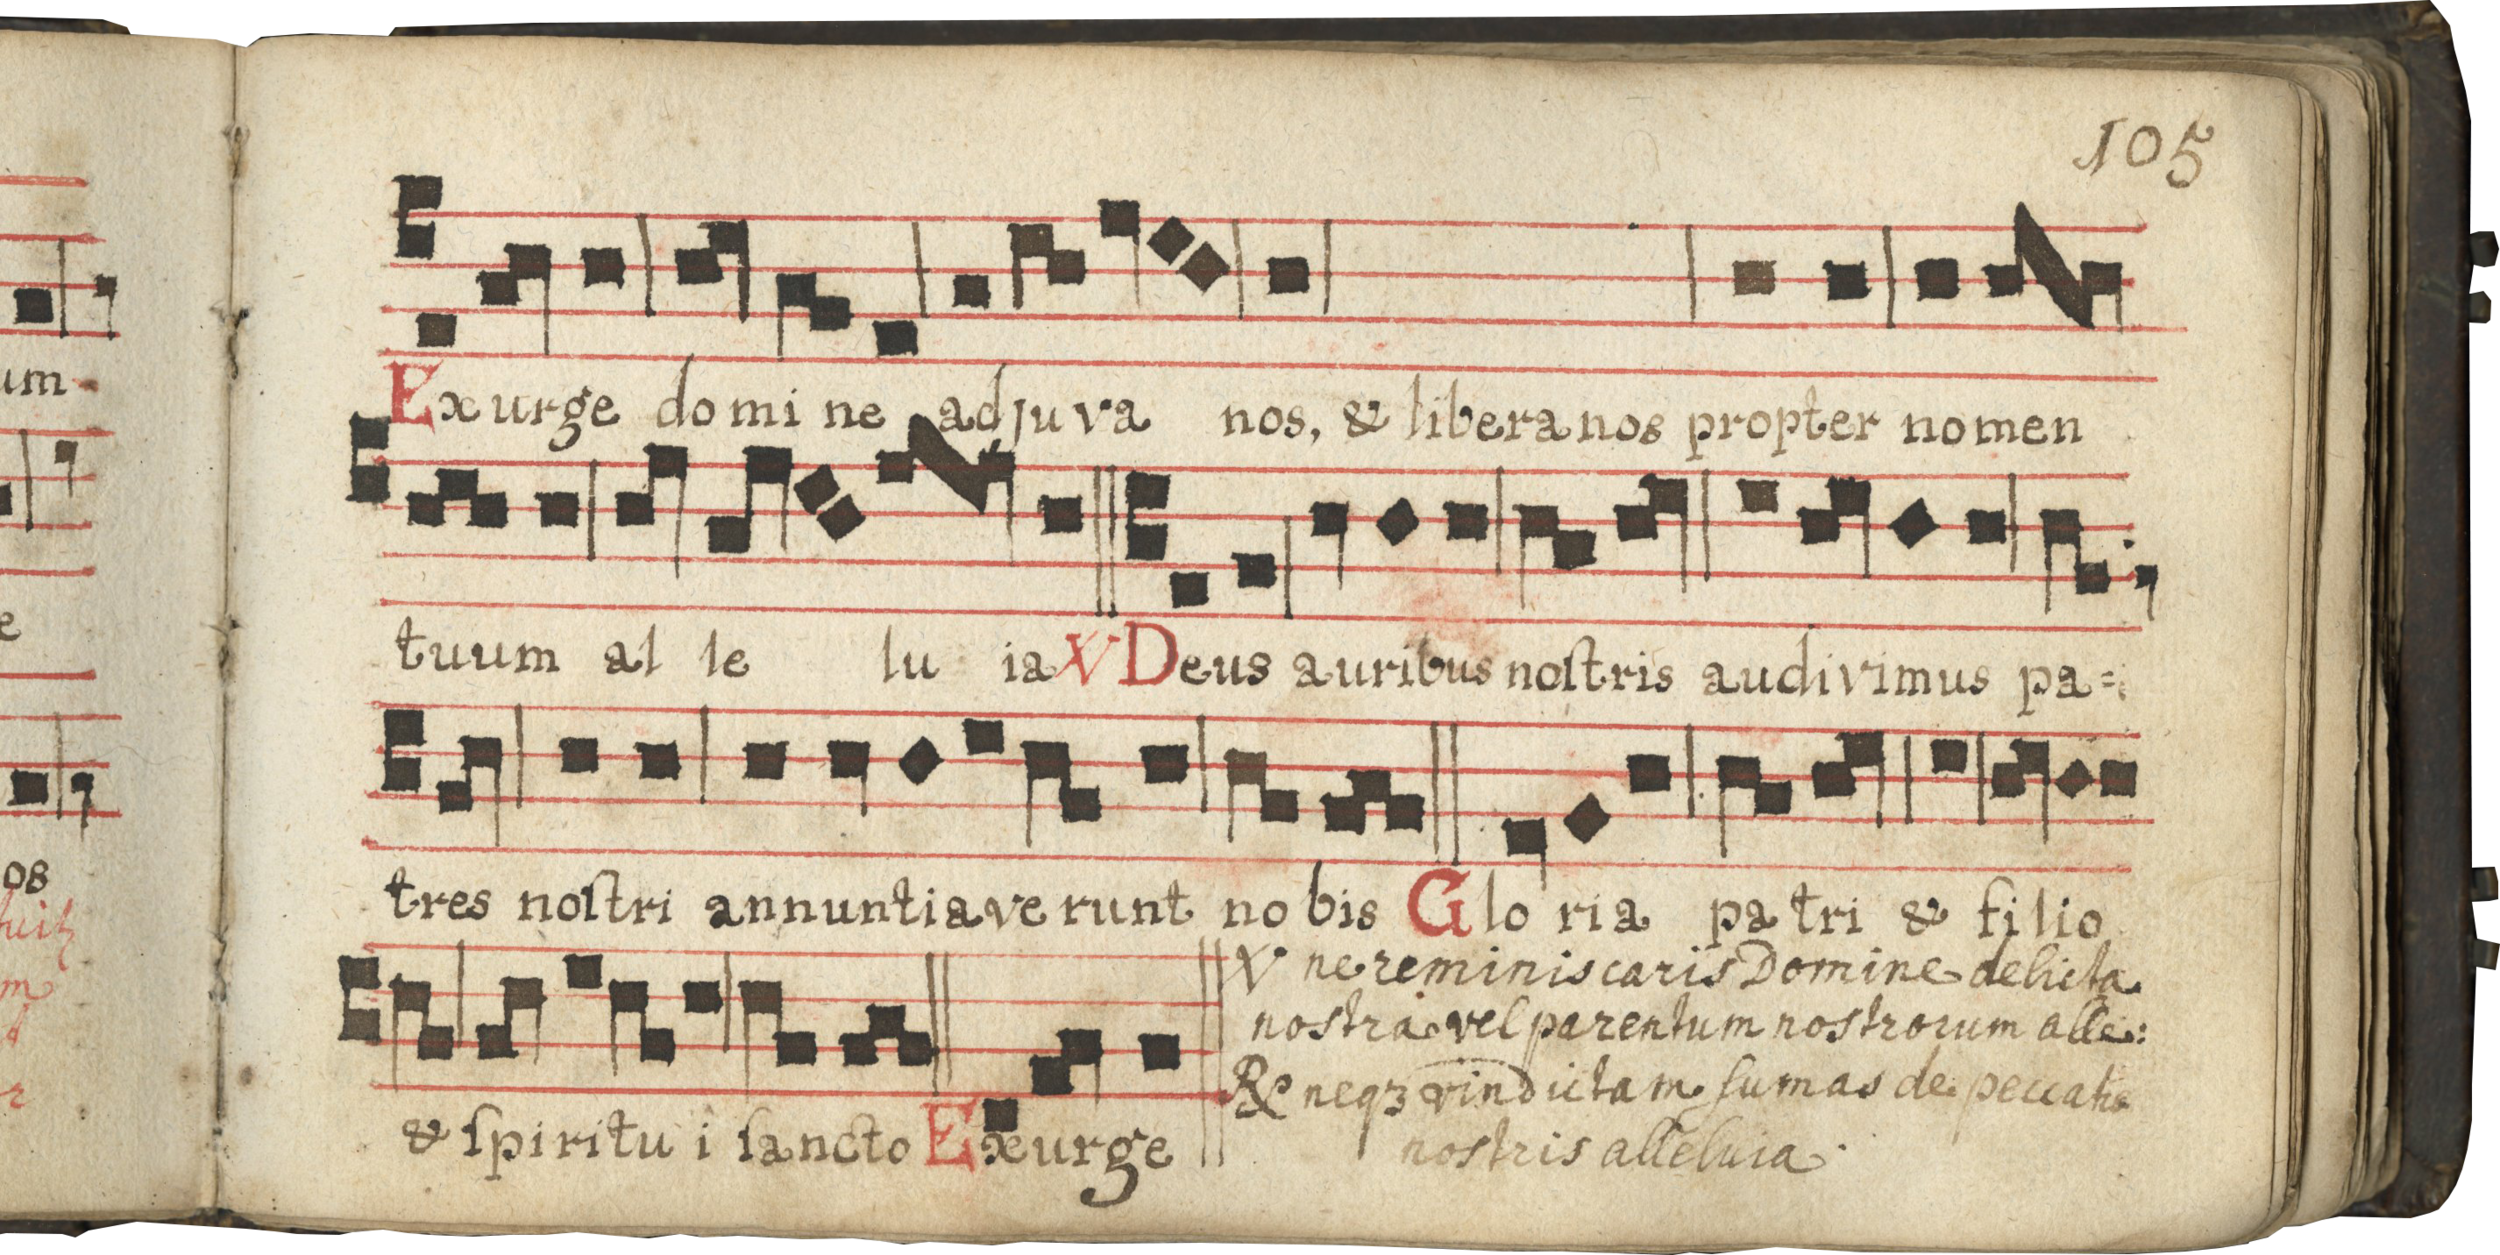 105
um
Exurge domine adjuva nos, & libera nos propter nomen
e
tuum al le lu ia V Deus auribus noſtris audivimus pa=
os
tres noſtri annuntiaverunt nobis Gloria patri & filio
V ne reminiscaris Domine delicta
m
nostra vel parentum nostrorum alle:
& ſpiritui ſancto Exurge
R neqz vindictam sumas de peccatis
r
nostris alleluia.